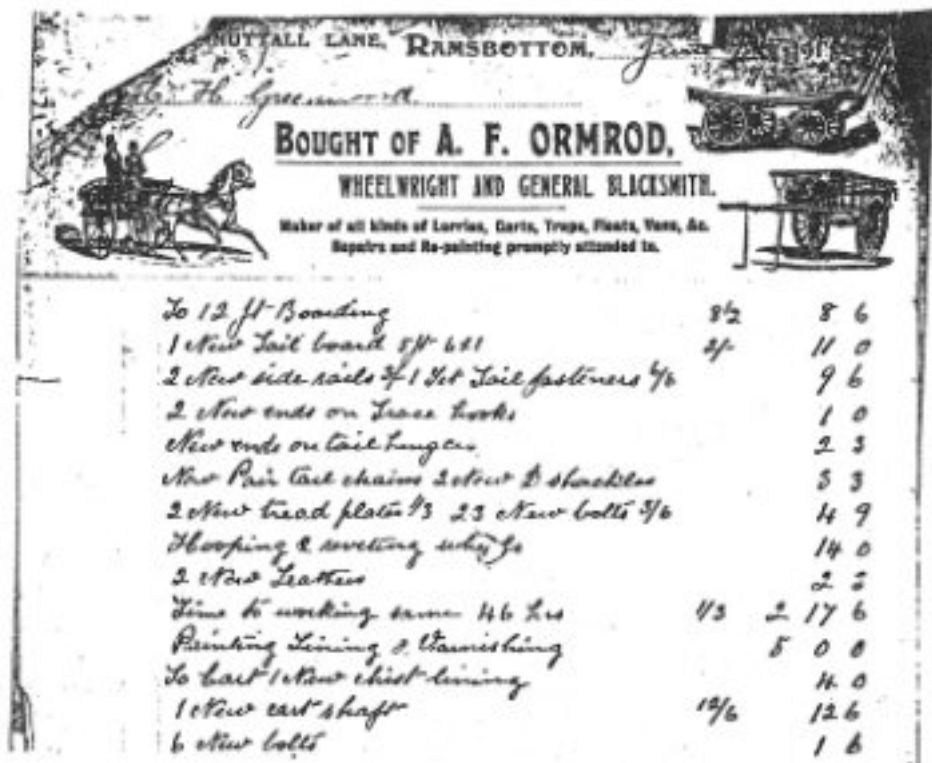 NUTTALL LANE, RAMSBOTTOM, June
H. Greenwood
BOUGHT OF A. F. ORMROD,
WHEELWRIGHT AND GENERAL BLACKSMITH.
Maker of all kinds of Lorries, Carts, Traps, Floats, Vans, &c.
Repairs and Re-painting promptly attended to.
To 12 ft Boarding 8½ 8 6
1 New Tail board 5ft 6x1 2/- 11 0
2 New side rails 3/- 1 Set Tail fasteners 6/6 9 6
2 New ends on Trace hooks 1 0
New ends on tail hinges 2 3
New Pair tail chains 2 New D shackles 3 3
2 New tread plates 1/3 23 New bolts 3/6 4 9
Hooping & riveting 14 0
2 New Leathers 2
Time to working same 46 hrs 1/3 2 17 6
Painting Lining & Varnishing 5 0 0
To Cart 1 New chist lining 4 0
1 New cart shaft 12/6 12 6
6 New bolts 1 6